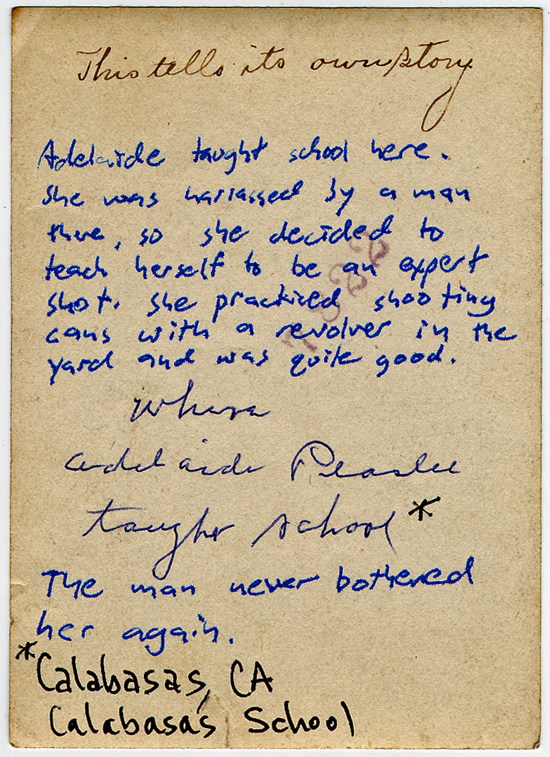 This tells its own story
Adelaide taught school here.
She was harrassed by a man
there, so she decided to
teach herself to be an expert
shot. She practiced shooting
cans with a revolver in the
yard and was quite good.
where
adelaide Peaslee
taught school*
The man never bothered
her again.
*Calabasas, CA
Calabasas School